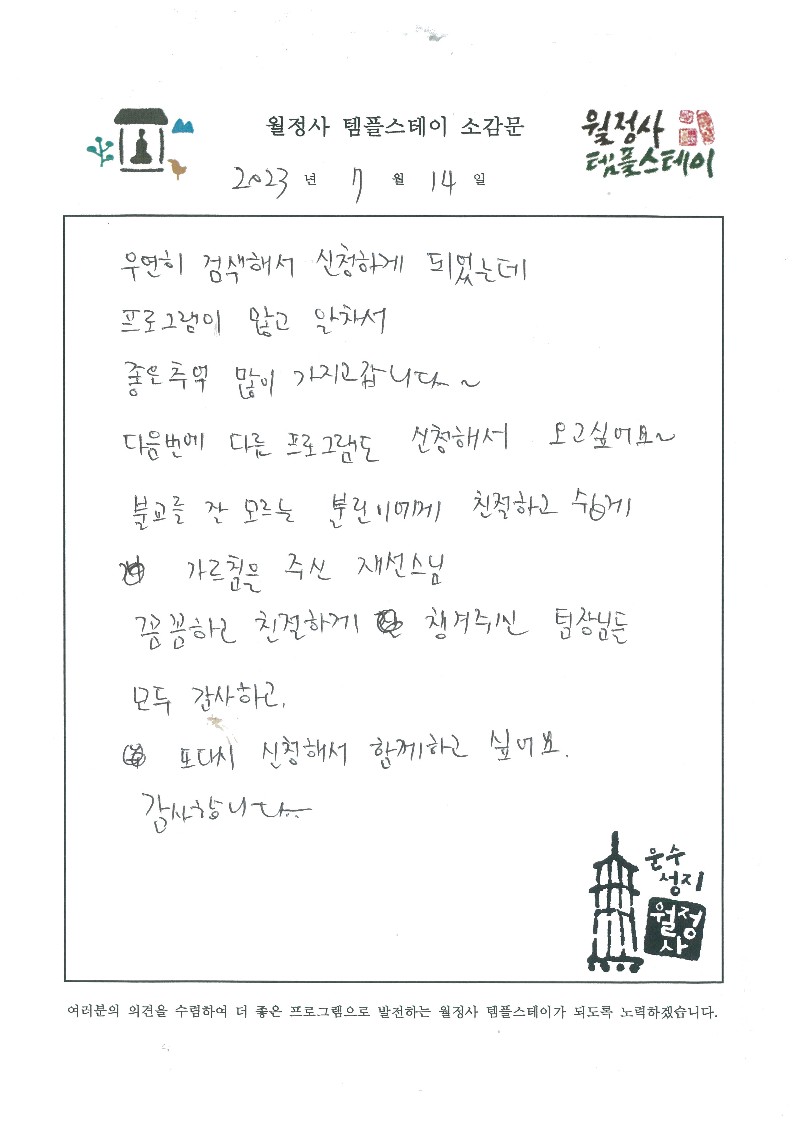 월정사 템플스테이 소감문
월정사
템플스테이
2023 년 7 월 14 일
우연히 검색해서 신청하게 되었는데
프로그램이 많고 알차서
좋은추억 많이 가지고갑니다~
다음번에 다른 프로그램도 신청해서 오고싶어요~
불교를 잘 모르는 불린이에게 친절하고 쉽게
가르침을 주신 재선스님
꼼꼼하고 친절하게 챙겨주신 팀장님들
모두 감사하고,
또다시 신청해서 함께하고 싶어요.
감사합니다...
문수
성지
월정
사
여러분의 의견을 수렴하여 더 좋은 프로그램으로 발전하는 월정사 템플스테이가 되도록 노력하겠습니다.